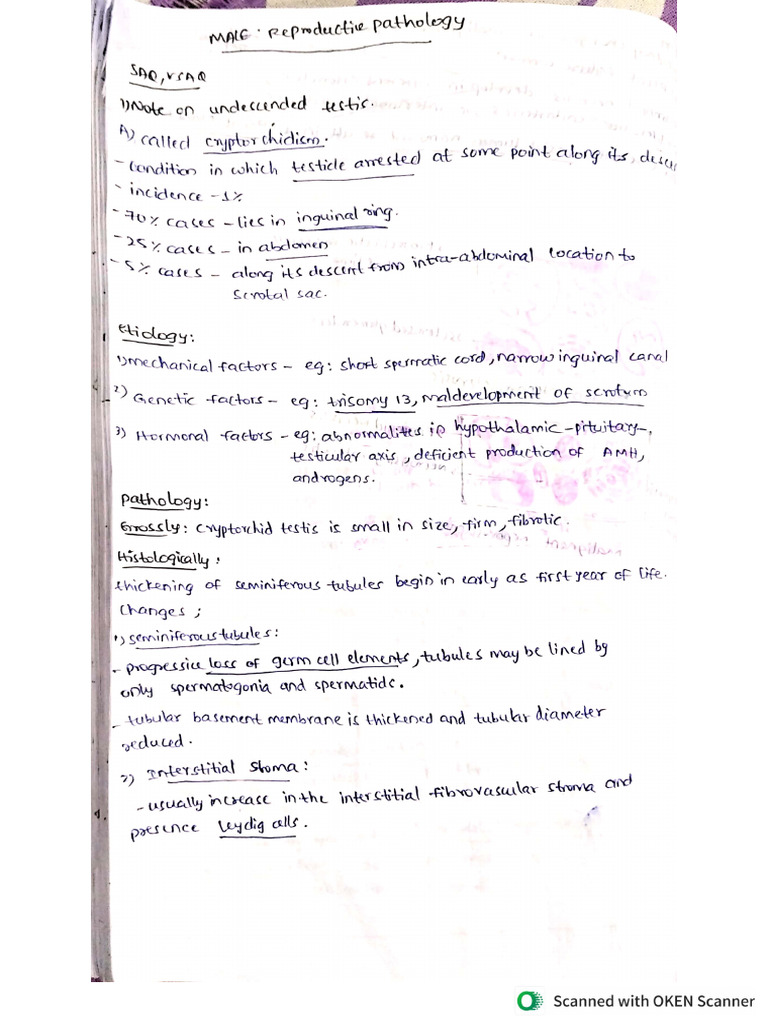 MALE: Reproductive pathology
SAQ, VSAQ
1) Note on undescended testis.
A) called cryptorchidism.
- Condition in which testicle arrested at some point along its, descu
- incidence - 1%
- 70% cases - lies in inguinal ring.
- 25% cases - in abdomen
- 5% cases - along its descent from intra-abdominal location to
scrotal sac.
Etiology:
1) mechanical factors - eg: short spermatic cord, narrow inguinal canal
2) Genetic factors - eg: trisomy 13, maldevelopment of scrotum
3) Hormonal factors - eg: abnormalites in hypothalamic-pituitary-,
testicular axis, deficient production of AMH,
androgens.
Pathology:
Grossly: cryptorchid testis is small in size, firm, fibrotic.
Histologically:
thickening of seminiferous tubules begin in early as first year of life.
Changes;
1) seminiferous tubules:
- progressive loss of germ cell elements, tubules may be lined by
only spermatogonia and spermatids.
- tubular basement membrane is thickened and tubular diameter
reduced.
2) Interstitial stoma:
- usually increase in the interstitial fibrovascular stroma and
presence leydig cells.
Scanned with OKEN Scanner